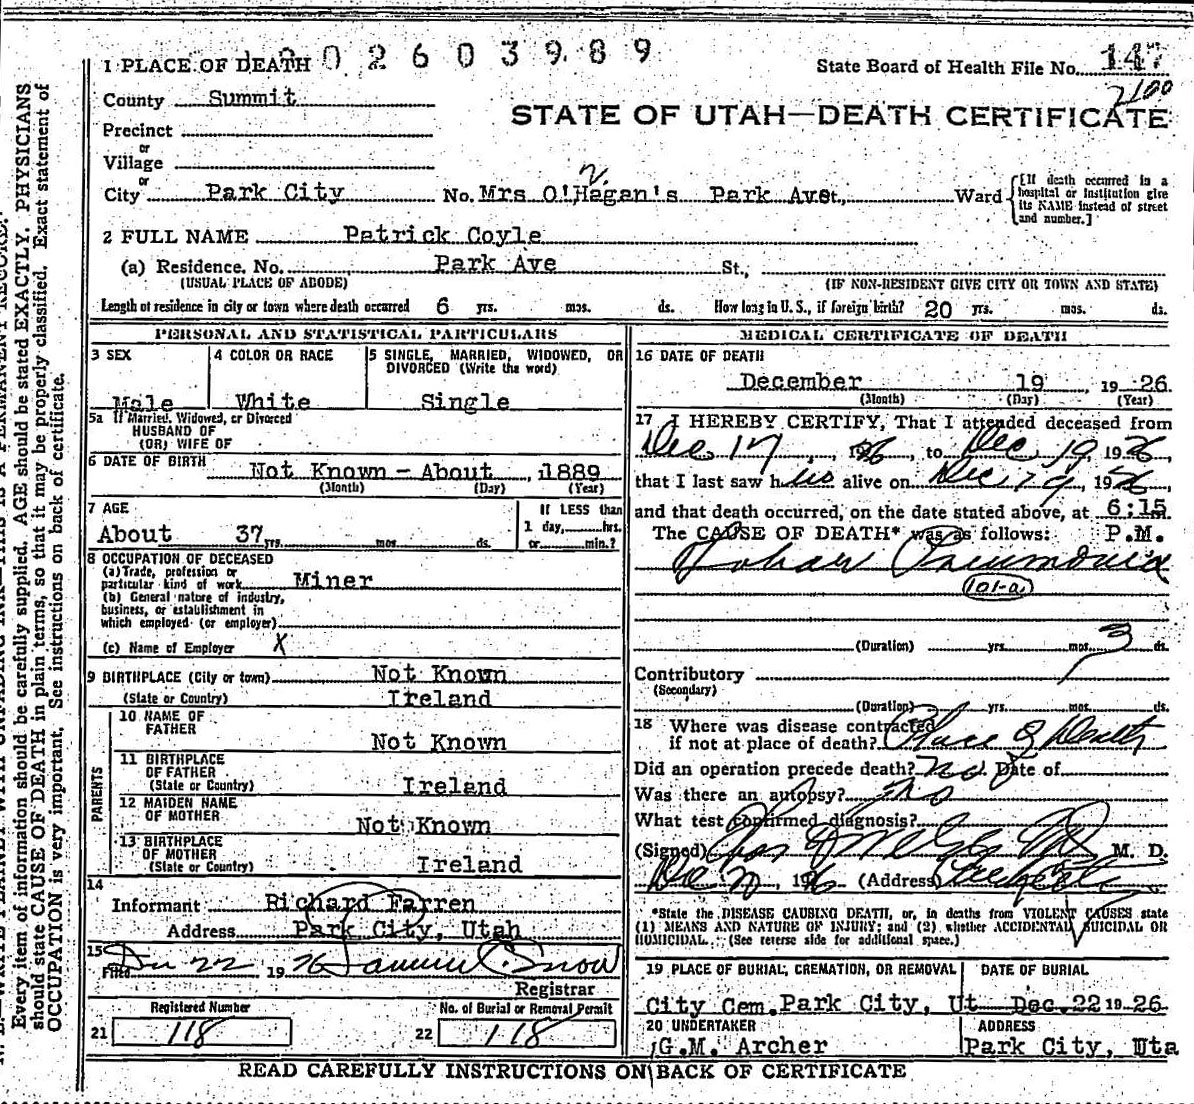 2 0 2 6 0 3 9 8 9
1 PLACE OF DEATH
State Board of Health File No. 147
2400
County Summit
STATE OF UTAH—DEATH CERTIFICATE
Precinct
or
Village
or
City Park City No. Mrs O'Hagan's Park Ave St., Ward
[If death occurred in a hospital or institution give its NAME instead of street and number.]
2 FULL NAME Patrick Coyle
(a) Residence. No. Park Ave St.,
(USUAL PLACE OF ABODE) (IF NON-RESIDENT GIVE CITY OR TOWN AND STATE)
Length of residence in city or town where death occurred 6 yrs. mos. ds. How long in U. S., if foreign birth? 20 yrs. mos. ds.
PERSONAL AND STATISTICAL PARTICULARS
3 SEX
Male
4 COLOR OR RACE
White
5 SINGLE, MARRIED, WIDOWED, OR
DIVORCED (Write the word)
Single
5a If Married, Widowed, or Divorced
HUSBAND OF
(OR) WIFE OF
6 DATE OF BIRTH Not Known - About , 1889
(Month) (Day) (Year)
7 AGE
About 37 yrs. mos ds.
If LESS than
1 day, hrs.
or min.?
8 OCCUPATION OF DECEASED
(a) Trade, profession or
particular kind of work Miner
(b) General nature of industry,
business, or establishment in
which employed (or employer)
(c) Name of Employer X
9 BIRTHPLACE (City or town) Not Known
(State or Country) Ireland
PARENTS
10 NAME OF
FATHER
Not Known
11 BIRTHPLACE
OF FATHER
(State or Country) Ireland
12 MAIDEN NAME
OF MOTHER
Not Known
13 BIRTHPLACE
OF MOTHER
(State or Country) Ireland
14
Informant Richard Farren
Address Park City, Utah
15
Filed Dec 22 1926 Snow
Registrar
Registered Number
21 118
No. of Burial or Removal Permit
22 118
MEDICAL CERTIFICATE OF DEATH
16 DATE OF DEATH
December 19 19 26
(Month) (Day) (Year)
17 I HEREBY CERTIFY, That I attended deceased from
Dec 17, 1926, to Dec 19, 1926,
that I last saw him alive on Dec 19, 1926,
and that death occurred, on the date stated above, at 6:15
The CAUSE OF DEATH* was as follows: P.M.
Lobar Pneumonia
101-a
(Duration) yrs. mos. 3 ds.
Contributory
(Secondary)
(Duration) yrs. mos. ds.
18 Where was disease contracted
if not at place of death? Place of Death
Did an operation precede death? no Date of
Was there an autopsy? no
What test confirmed diagnosis?
(Signed) M. D.
Dec 1926 (Address)
*State the DISEASE CAUSING DEATH, or, in deaths from VIOLENT CAUSES state
(1) MEANS AND NATURE OF INJURY; and (2) whether ACCIDENTAL, SUICIDAL OR
HOMICIDAL. (See reverse side for additional space.)
19 PLACE OF BURIAL, CREMATION, OR REMOVAL
City Cem. Park City, Ut
DATE OF BURIAL
Dec. 22 19 26
20 UNDERTAKER
G.M. Archer
ADDRESS
Park City, Uta
READ CAREFULLY INSTRUCTIONS ON BACK OF CERTIFICATE
Every item of information should be carefully supplied. AGE should be stated EXACTLY. PHYSICIANS
should state CAUSE OF DEATH in plain terms, so that it may be properly classified. Exact statement of
OCCUPATION is very important. See instructions on back of certificate.